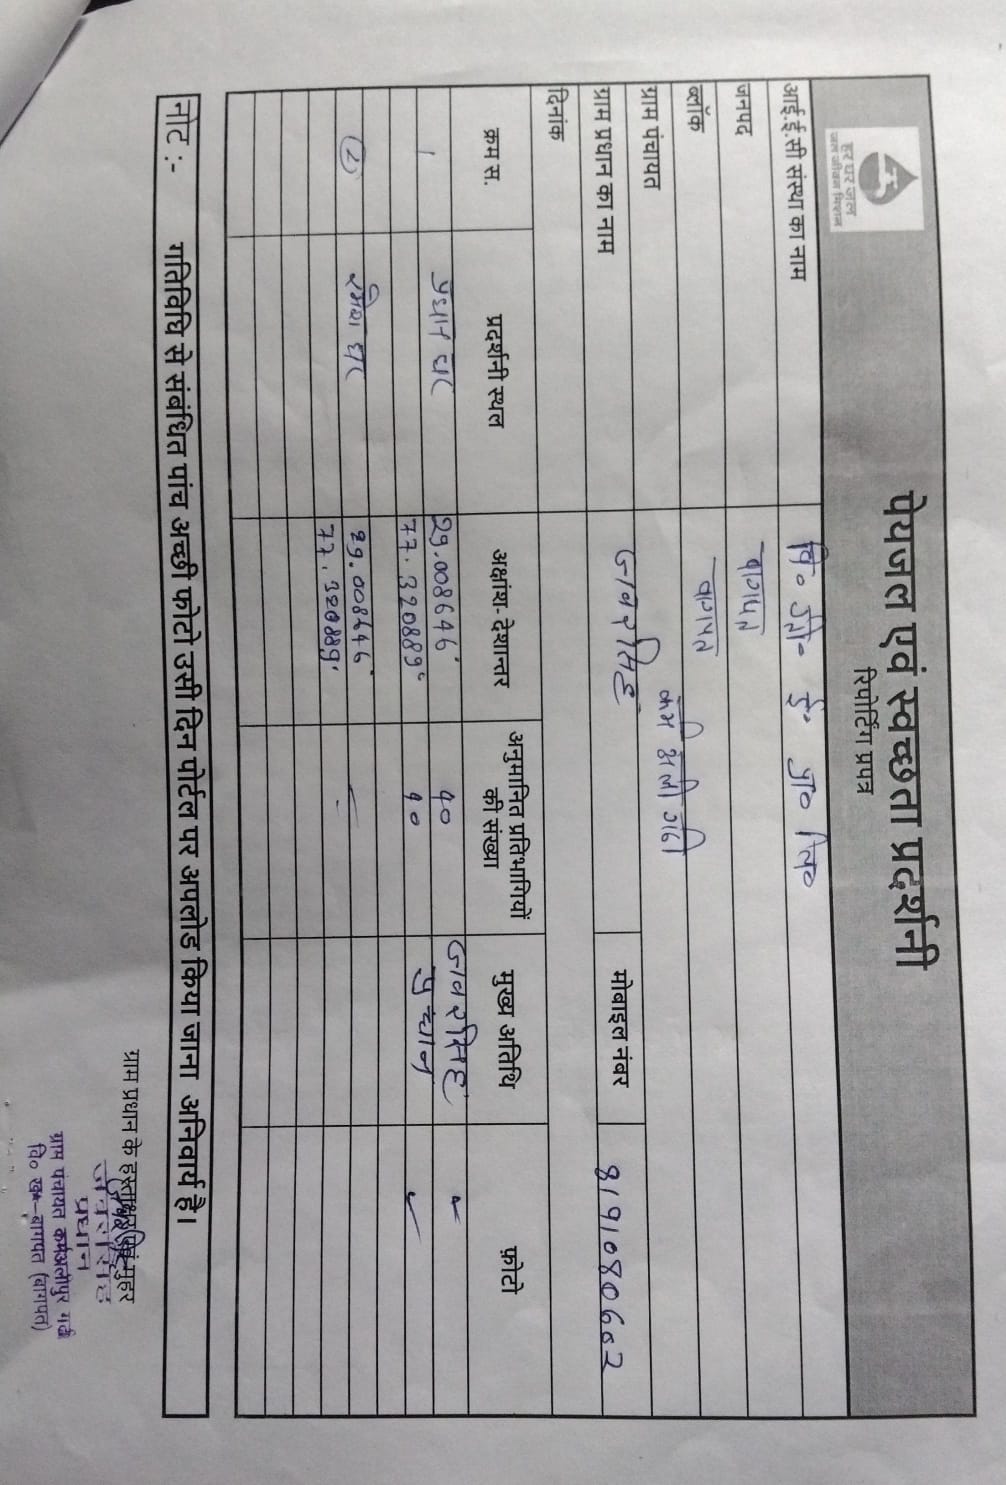 पेयजल एवं स्वच्छता प्रदर्शनी
रिपोर्टिंग प्रपत्र
हर घर जल
जल जीवन मिशन
आई.ई.सी संस्था का नाम
जनपद बागपत
ब्लॉक बागपत
ग्राम पंचायत
ग्राम प्रधान का नाम जवरसिंह मोबाइल नंबर 8191080602
दिनांक
क्रम स. प्रदर्शनी स्थल अक्षांश- देशान्तर अनुमानित प्रतिभागियों की संख्या मुख्य अतिथि फ़ोटो
1 प्रधान घर 29.008646° 90 जवरसिंह
77.320889° 90 प्रधान
2 घर 29.008646°
77.320889°
नोट :- गतिविधि से संबंधित पांच अच्छी फोटो उसी दिन पोर्टल पर अपलोड किया जाना अनिवार्य है।
ग्राम प्रधान के हस्ताक्षर एवं मुहर
जवरसिंह
प्रधान
ग्राम पंचायत कर्मअलीपुर गढी
वि० ख०-बागपत (बागपत)